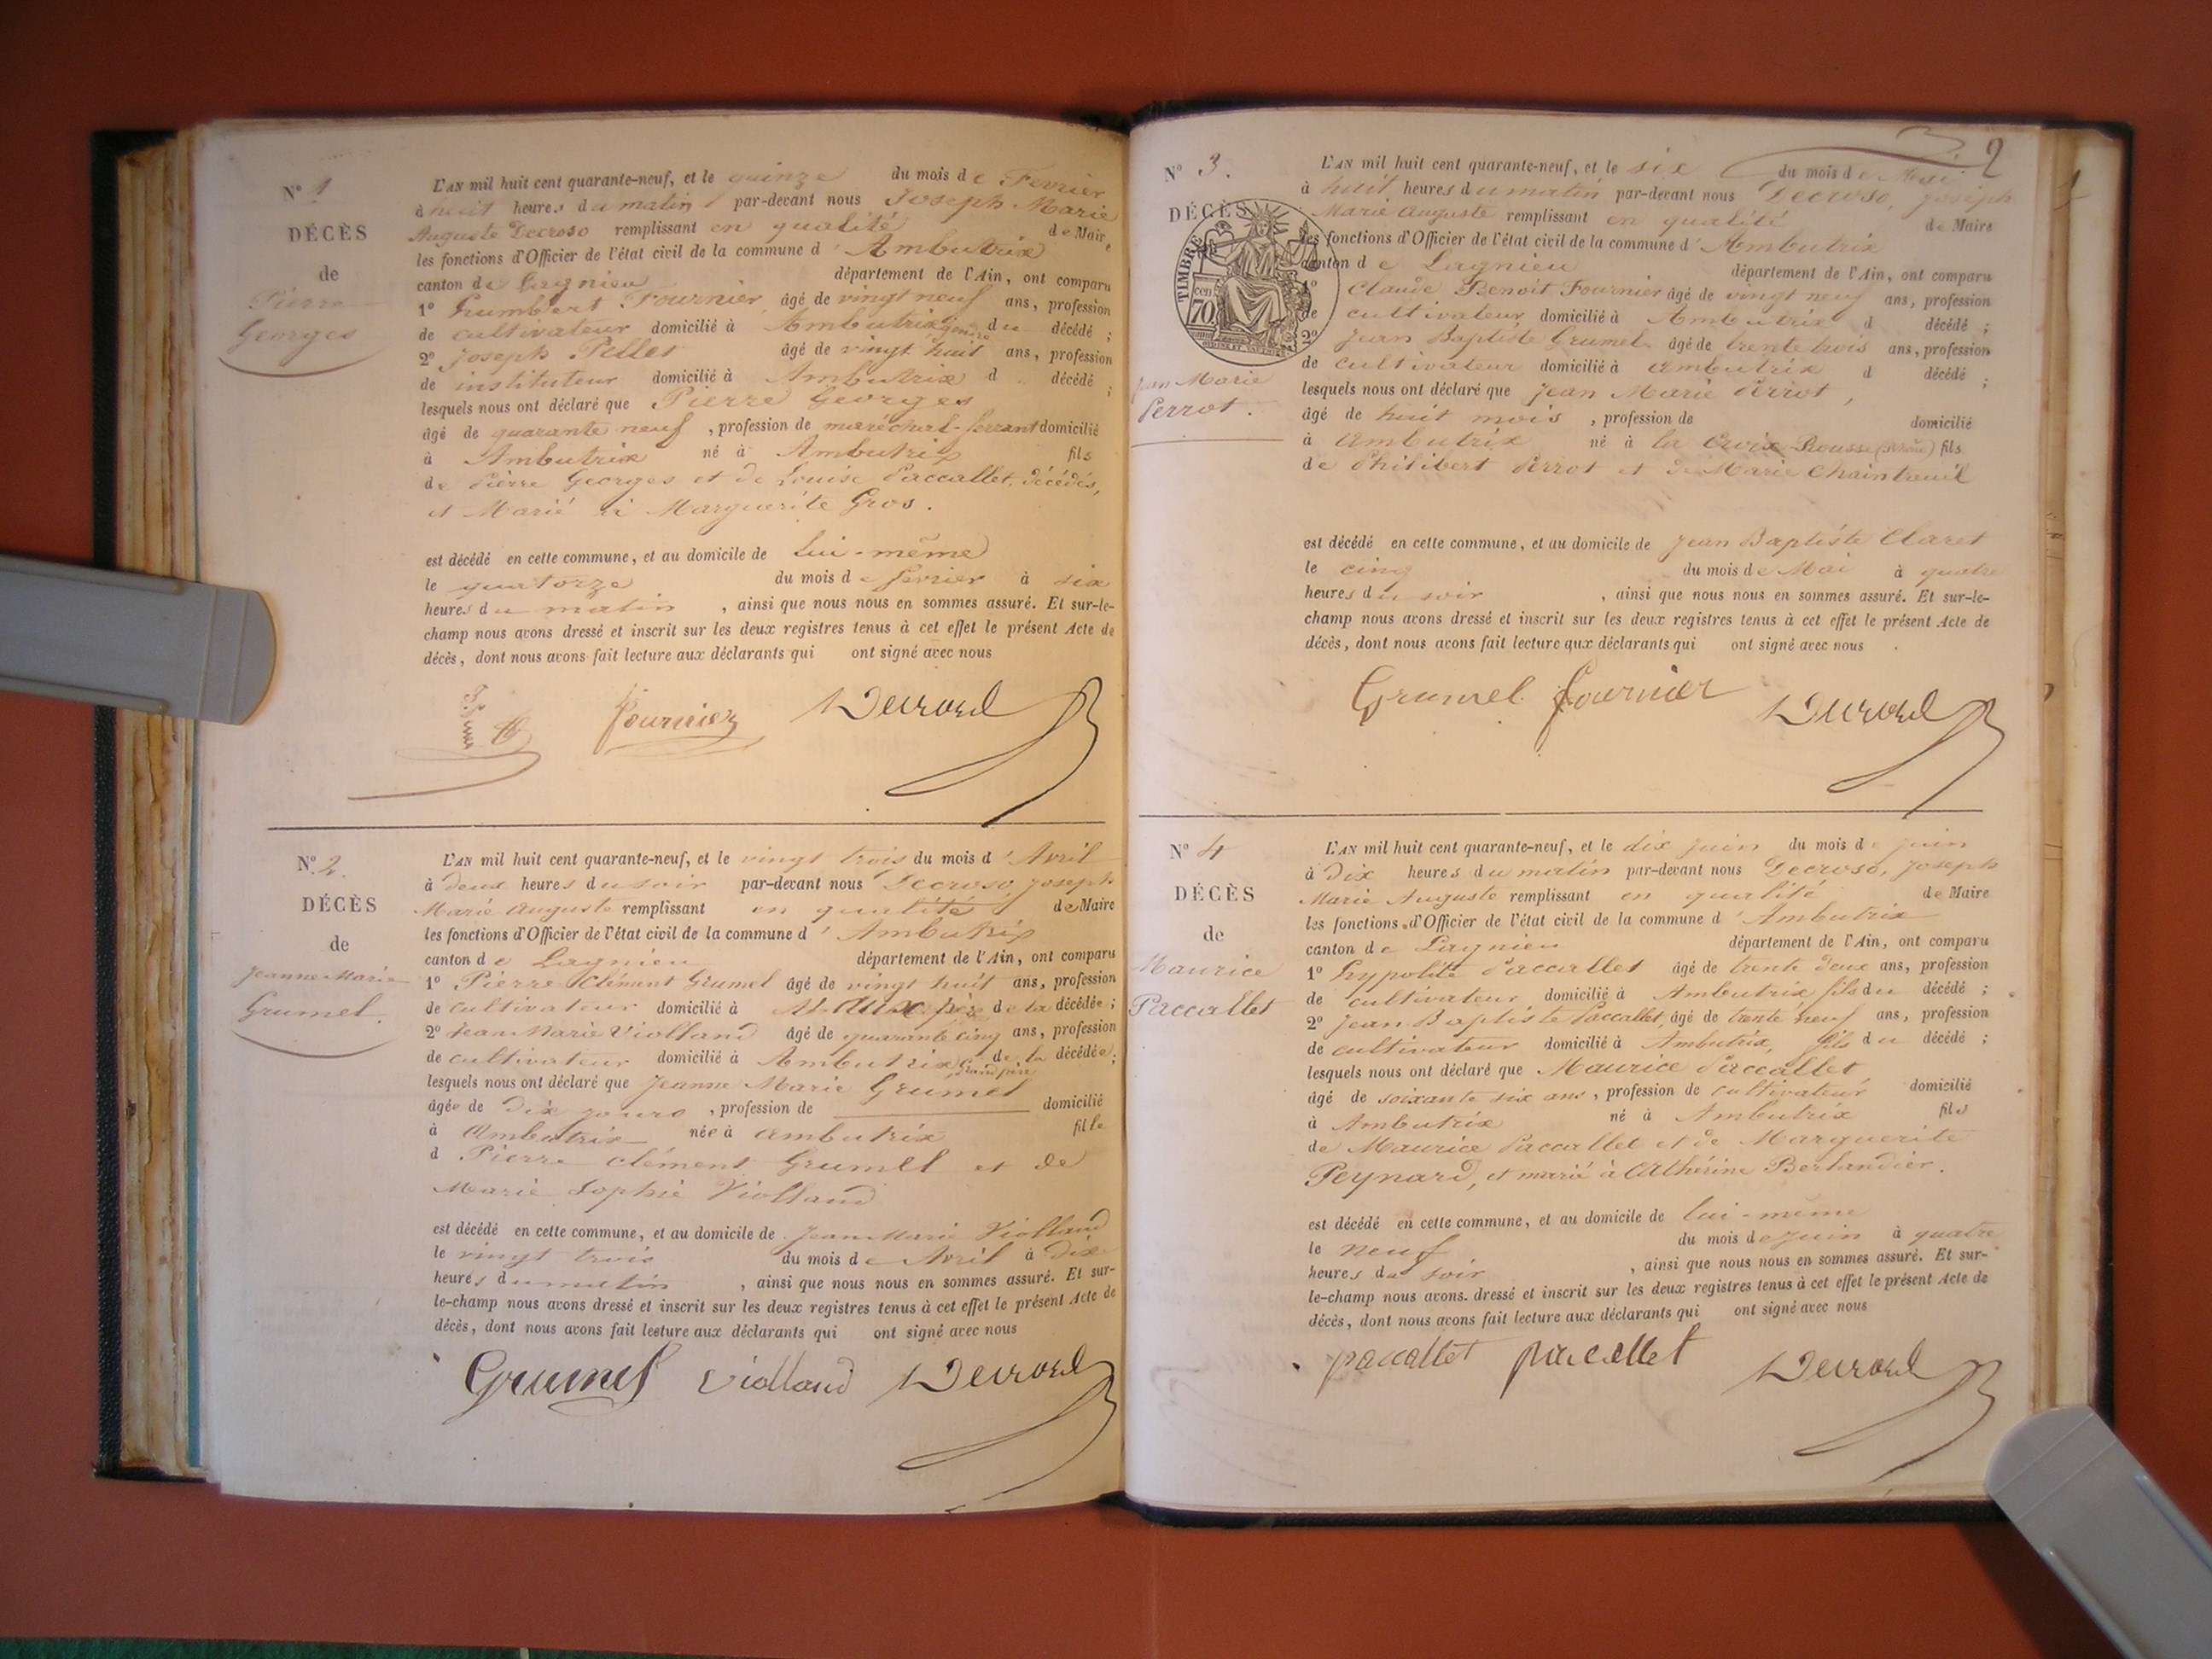 N° 1
DÉCÈS
de
Pierre
Georges
L'AN mil huit cent quarante-neuf, et le quinze du mois de Fevrier
à huit heures du matin par-devant nous Joseph Marie
Auguste Decroso remplissant en qualité de Maire
les fonctions d'Officier de l'état civil de la commune d'Ambutrix
canton de Lagnieu département de l'Ain, ont comparu
1° humbert Fournier, âgé de vingt neuf ans, profession
de cultivateur domicilié à Ambutrix gendre du décédé ;
2° joseph Pellet âgé de vingt huit ans, profession
de instituteur domicilié à Ambutrix d décédé ;
lesquels nous ont déclaré que Pierre Georges
âgé de quarante neuf, profession de maréchal-ferrant domicilié
à Ambutrix né à Ambutrix fils
de Pierre Georges et de Louise Paccallet, décédés,
et Marié à Marguerite Gros.
est décédé en cette commune, et au domicile de lui-même
le quatorze du mois de fevrier à six
heures du matin, ainsi que nous nous en sommes assuré. Et sur-le-
champ nous avons dressé et inscrit sur les deux registres tenus à cet effet le présent Acte de
décès, dont nous avons fait lecture aux déclarants qui ont signé avec nous
fournier Decroso
N° 2.
DÉCÈS
de
Jeanne Marie
Grumel.
L'AN mil huit cent quarante-neuf, et le vingt trois du mois d'Avril
à deux heures du soir par-devant nous Decroso, joseph
Marie auguste remplissant en qualité de Maire
les fonctions d'Officier de l'état civil de la commune d'Ambutrix
canton de Lagnieu département de l'Ain, ont comparu
1° Pierre Clément Grumel âgé de vingt huit ans, profession
de cultivateur domicilié à père de la décédée ;
2° Jean Marie Violland âgé de quarante cinq ans, profession
de cultivateur domicilié à Ambutrix grand père de la décédée ;
lesquels nous ont déclaré que Jeanne Marie Grumel
âgée de dix jours, profession de domicilié
à Ambutrix née à ambutrix fille
d Pierre clément Grumel et de
Marie Sophie Violland
est décédé en cette commune, et au domicile de Jean Marie Violland
le vingt trois du mois de Avril à dix
heures du matin, ainsi que nous nous en sommes assuré. Et sur-
le-champ nous avons dressé et inscrit sur les deux registres tenus à cet effet le présent Acte de
décès, dont nous avons fait lecture aux déclarants qui ont signé avec nous
Grumel Violland Decroso
2
N° 3.
DÉCÈS
TIMBRE
70
Jean Marie
Perrot.
L'AN mil huit cent quarante-neuf, et le six du mois de Mai
à huit heures du matin par-devant nous Decroso, joseph
Marie Auguste remplissant en qualité de Maire
les fonctions d'Officier de l'état civil de la commune d'Ambutrix
canton de Lagnieu département de l'Ain, ont comparu
1° Claude Benoit Fournier âgé de vingt neuf ans, profession
de cultivateur domicilié à Ambutrix d décédé ;
2° Jean Baptiste Grumel âgé de trente trois ans, profession
de cultivateur domicilié à ambutrix d décédé ;
lesquels nous ont déclaré que Jean Marie Perrot,
âgé de huit mois, profession de domicilié
à Ambutrix né à la Croix Rousse (Rhône) fils
de Philibert Perrot et de Marie Chaintreuil
est décédé en cette commune, et au domicile de Jean Baptiste Claret
le cinq du mois de Mai à quatre
heures du soir, ainsi que nous nous en sommes assuré. Et sur-le-
champ nous avons dressé et inscrit sur les deux registres tenus à cet effet le présent Acte de
décès, dont nous avons fait lecture aux déclarants qui ont signé avec nous
Grumel. fournier Decroso
N° 4
DÉCÈS
de
Maurice
Paccallet
L'AN mil huit cent quarante-neuf, et le dix juin du mois de juin
à dix heures du matin par-devant nous Decroso, Joseph
Marie Auguste remplissant en qualité de Maire
les fonctions d'Officier de l'état civil de la commune d'Ambutrix
canton de Lagnieu département de l'Ain, ont comparu
1° hypolite Paccallet âgé de trente deux ans, profession
de cultivateur domicilié à Ambutrix fils du décédé ;
2° Jean Baptiste Paccallet, âgé de trente neuf ans, profession
de cultivateur domicilié à Ambutrix, fils du décédé ;
lesquels nous ont déclaré que Maurice Paccallet
âgé de soixante six ans, profession de cultivateur domicilié
à Ambutrix né à Ambutrix fils
de Maurice Paccallet et de Marguerite
Peynard, et marié à Cathérine Berlandier.
est décédé en cette commune, et au domicile de lui-même
le neuf du mois de juin à quatre
heures du soir, ainsi que nous nous en sommes assuré. Et sur-
le-champ nous avons dressé et inscrit sur les deux registres tenus à cet effet le présent Acte de
décès, dont nous avons fait lecture aux déclarants qui ont signé avec nous
paccallet paccallet Decroso